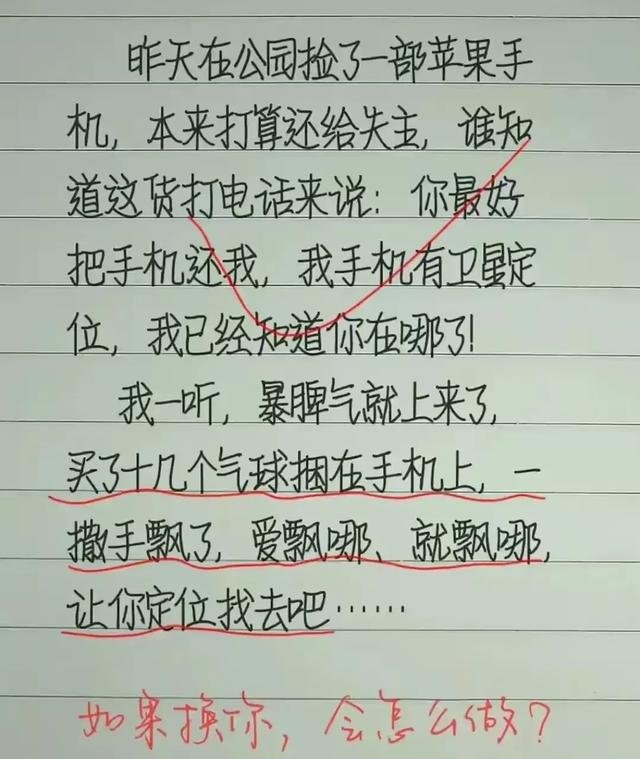 昨天在公园捡了一部苹果手
机，本来打算还给失主，谁知
道这货打电话来说：你最好
把手机还我，我手机有卫星定
位，我已经知道你在哪了！
我一听，暴脾气就上来了，
买了十几个气球捆在手机上，一
撒手飘了，爱飘哪、就飘哪，
让你定位找去吧……
如果换你，会怎么做？